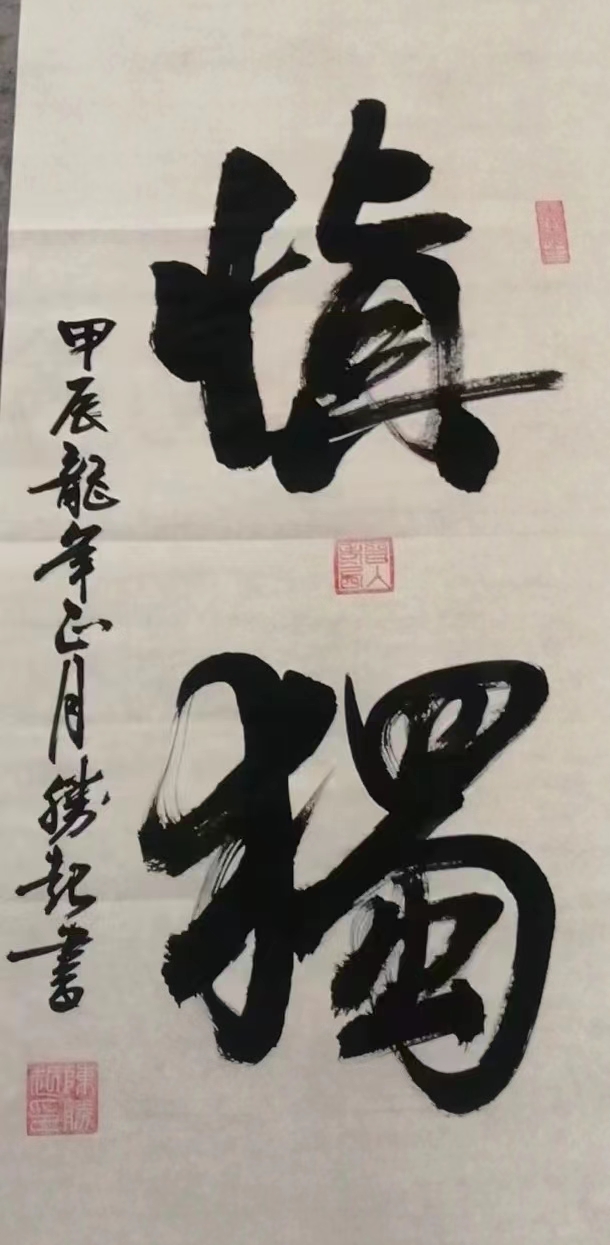 慎獨
甲辰龍年正月勝起書